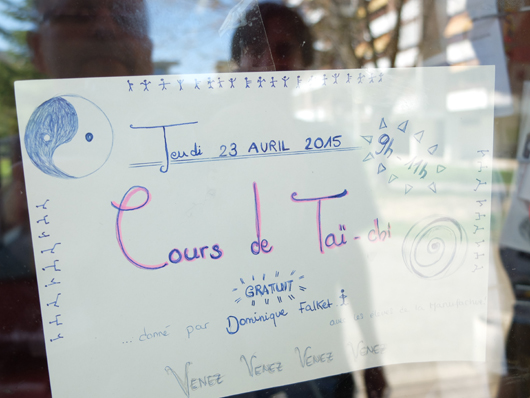 Jeudi 23 AVRIL 2015
9h - 11h
Cours de Taï-chi
GRATUIT
... donné par Dominique Falket
VENEZ VENEZ VENEZ VENEZ